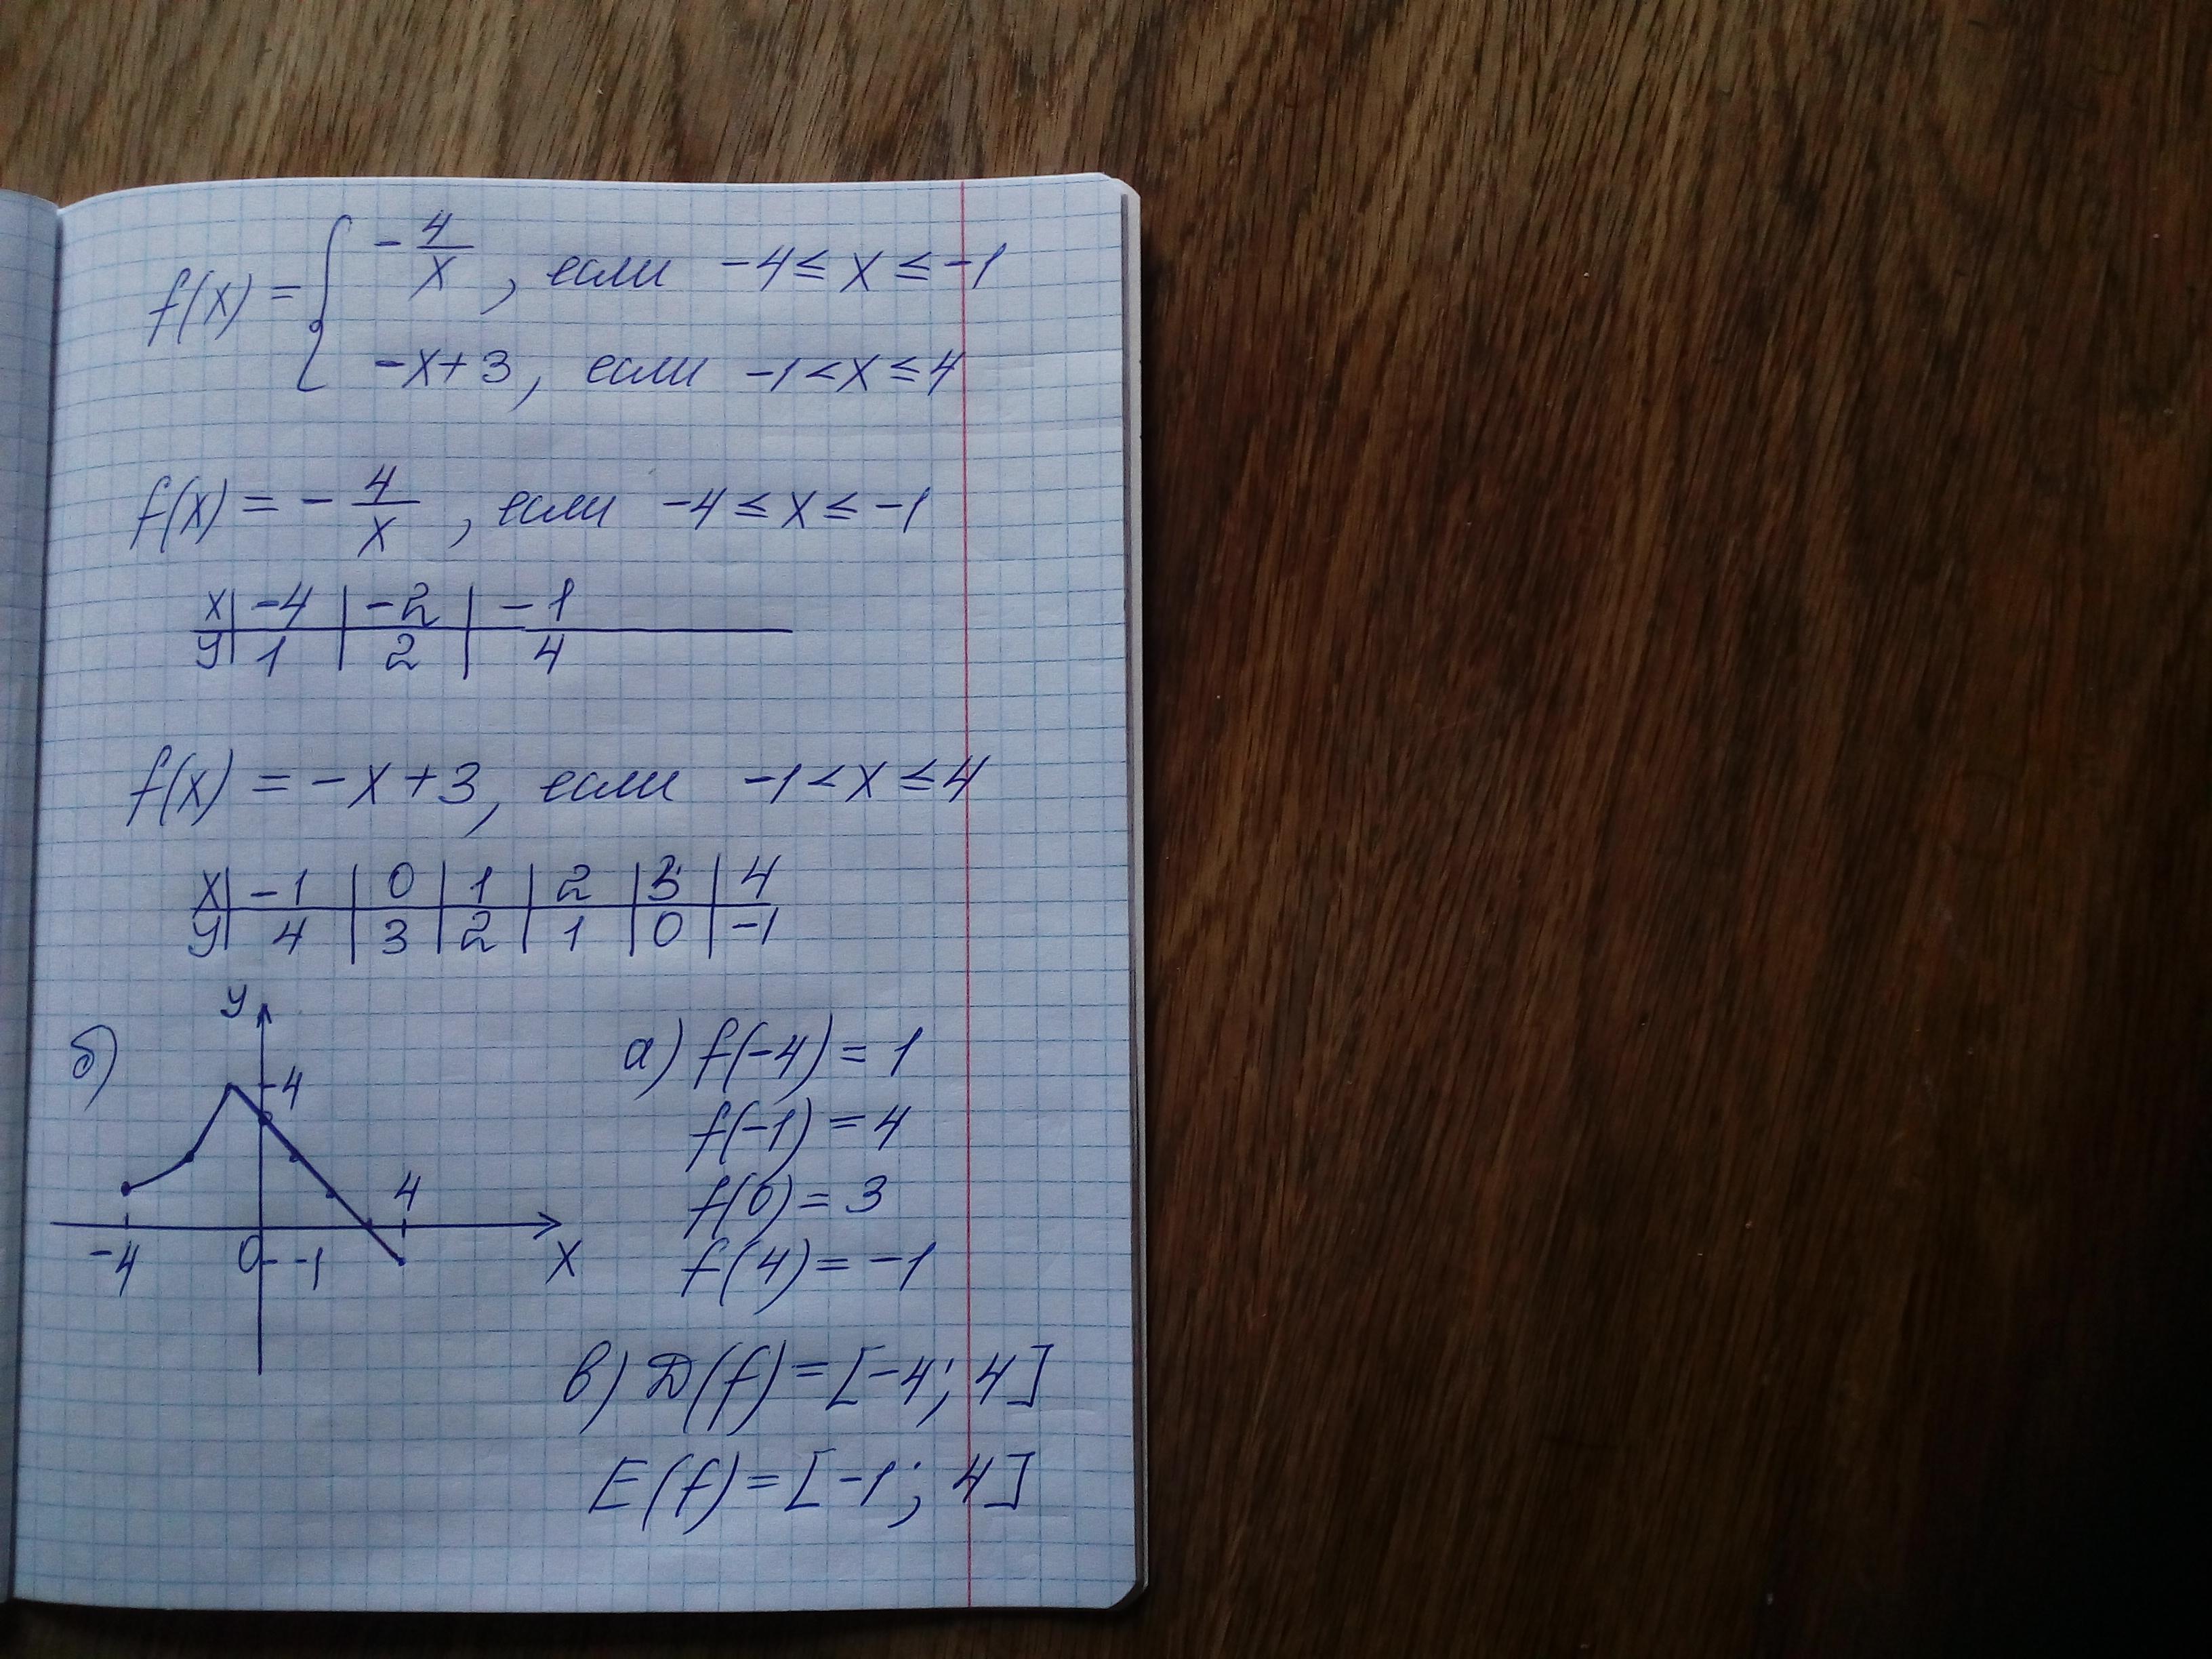 f(x) = { -4/x, если -4 ≤ x ≤ -1
-x+3, если -1 < x ≤ 4
f(x) = -4/x, если -4 ≤ x ≤ -1
x | -4 | -2 | -1
y | 1 | 2 | 4
f(x) = -x+3, если -1 < x ≤ 4
x | -1 | 0 | 1 | 2 | 3 | 4
y | 4 | 3 | 2 | 1 | 0 | -1
б)
y
4
4
-4
0
-1
x
а) f(-4) = 1
f(-1) = 4
f(0) = 3
f(4) = -1
в) D(f) = [-4; 4]
E(f) = [-1; 4]